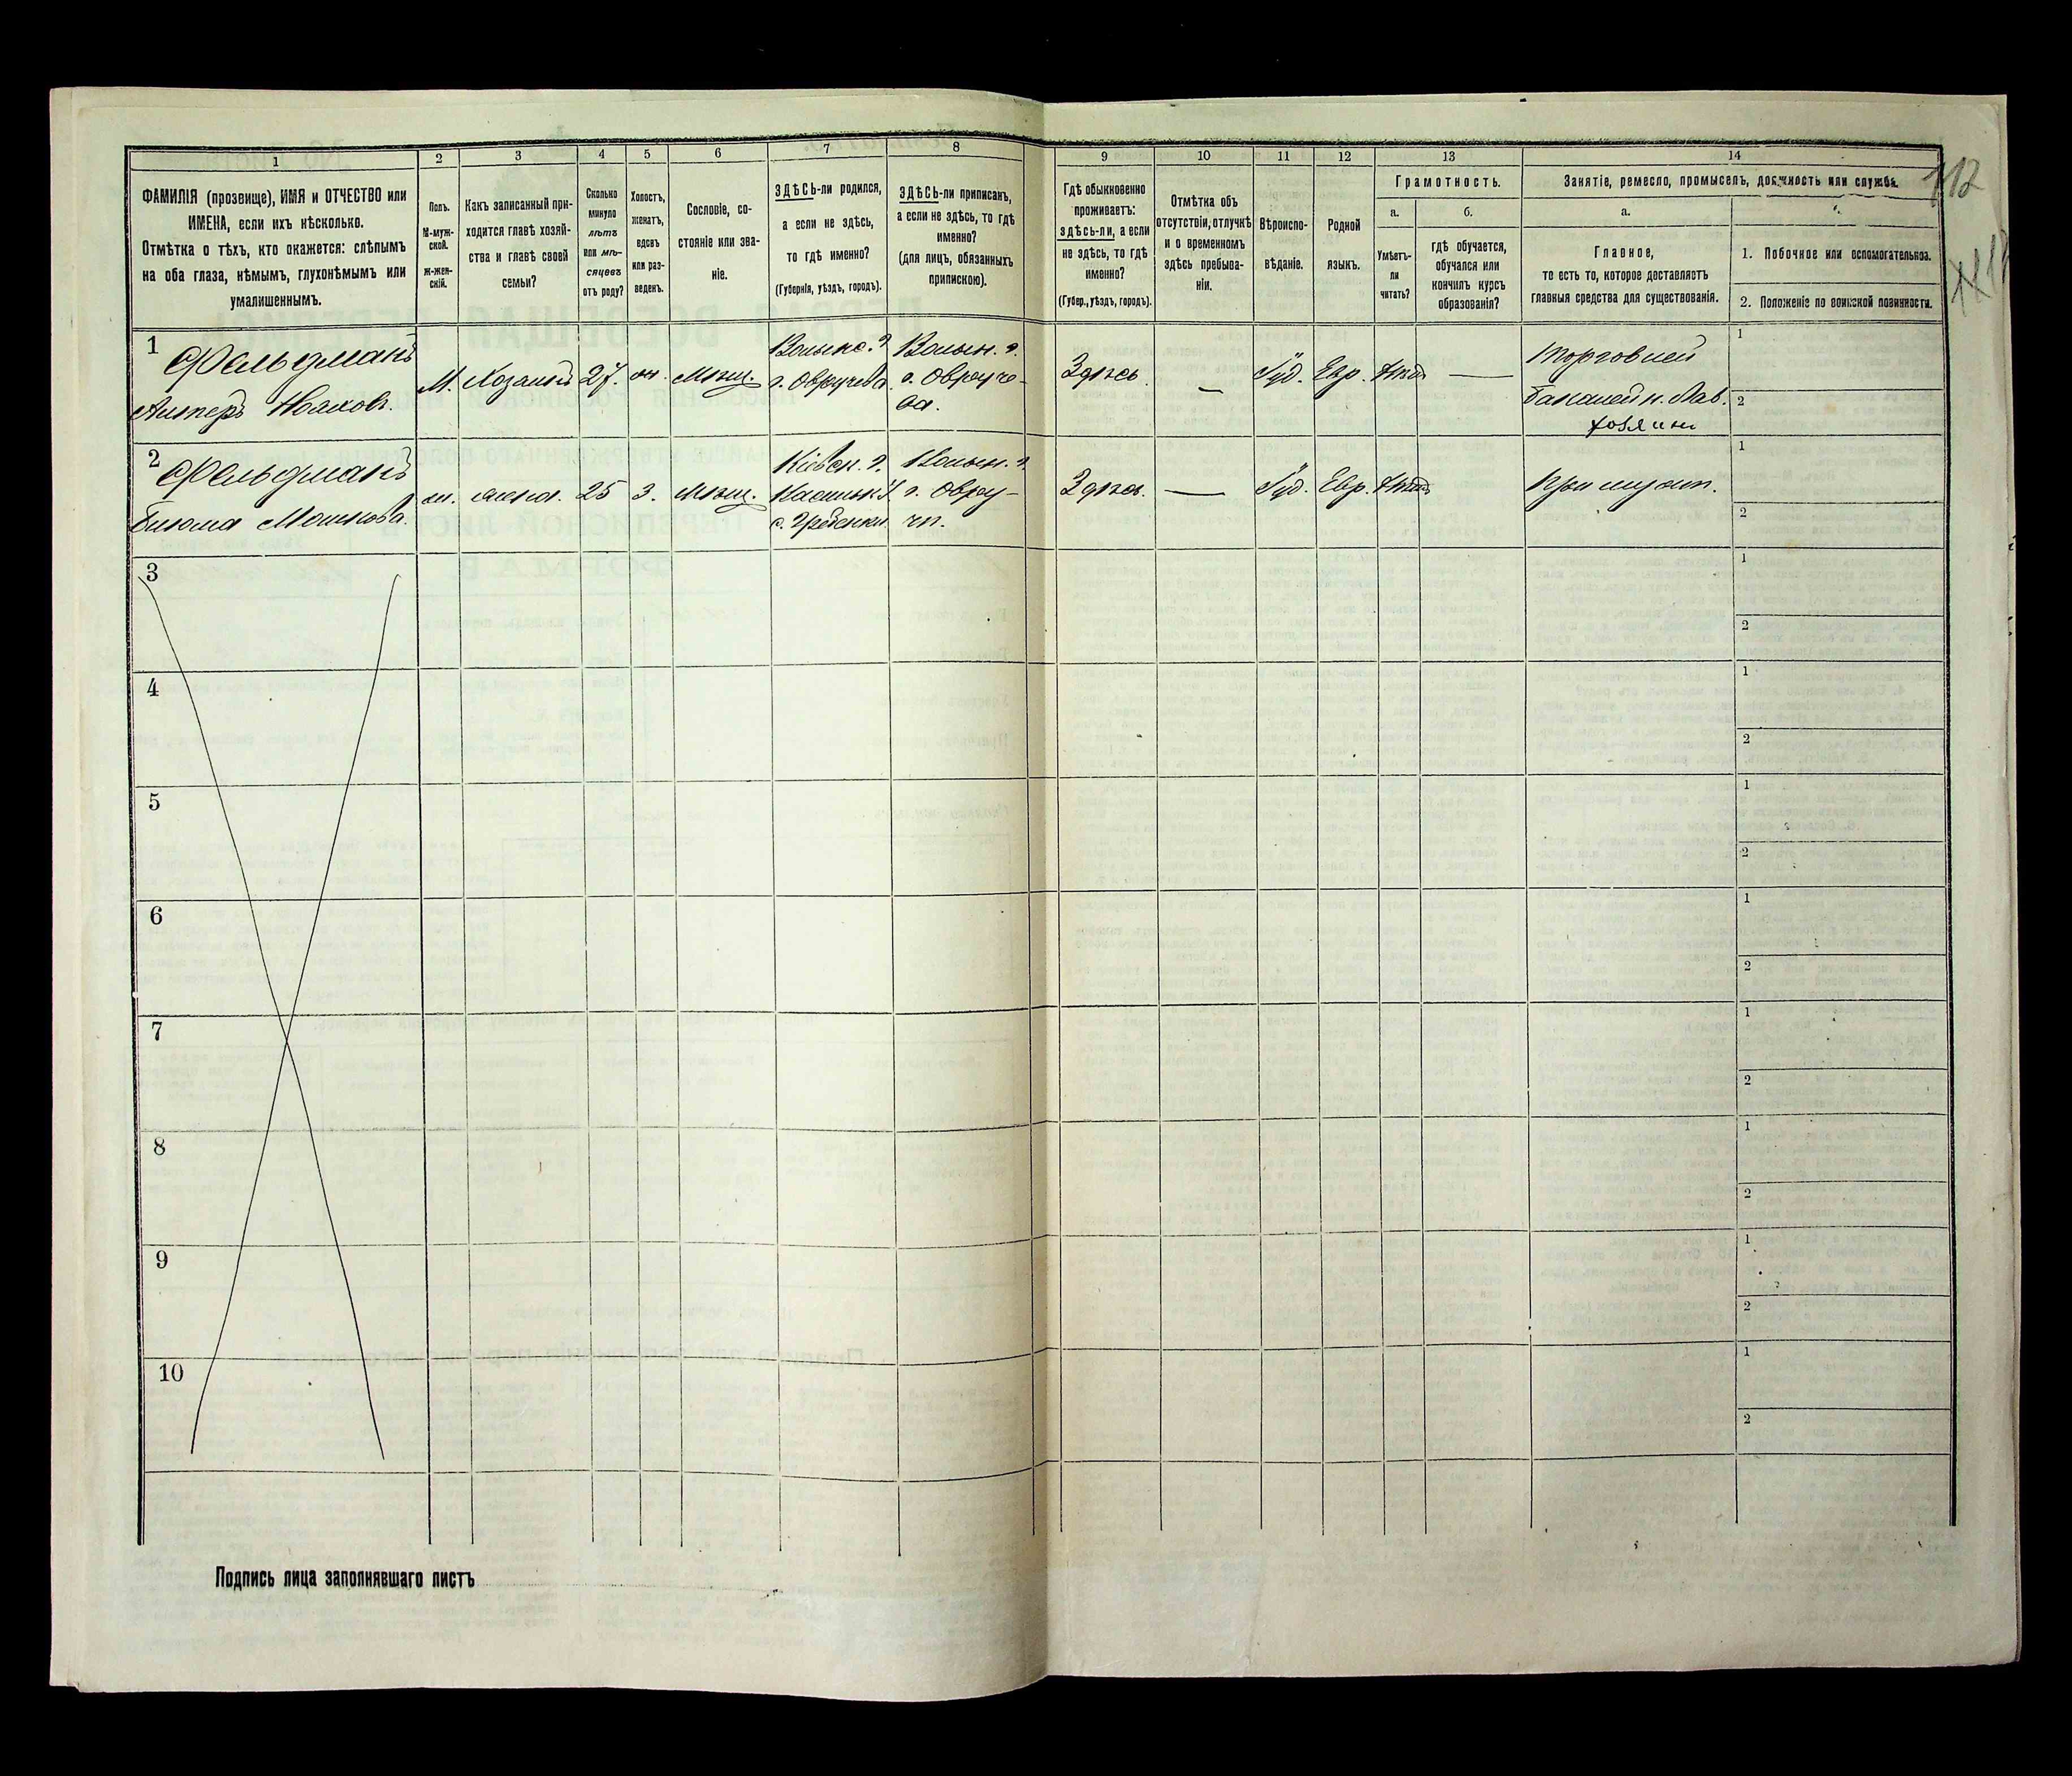 1
2
3
4
5
6
7
8
9
10
11
12
13
14
ФАМИЛІЯ (прозвище), ИМЯ и ОТЧЕСТВО или
ИМЕНА, если ихъ нѣсколько.
Отмѣтка о тѣхъ, кто окажется: слѣпымъ
на оба глаза, нѣмымъ, глухонѣмымъ или
умалишеннымъ.
Полъ.
М-муж-
ской.
Ж-жен-
скій.
Какъ записанный при-
ходится главѣ хозяй-
ства и главѣ своей
семьи?
Сколько
минуло
лѣтъ
или мѣ-
сяцевъ
отъ роду?
Холостъ,
женатъ,
вдовъ
или раз-
веденъ.
Сословіе, со-
стояніе или зва-
ніе.
ЗДѢСЬ-ли родился,
а если не здѣсь,
то гдѣ именно?
(Губернія, уѣздъ, городъ).
ЗДѢСЬ-ли приписанъ,
а если не здѣсь, то гдѣ
именно?
(для лицъ, обязанныхъ
припискою).
Гдѣ обыкновенно
проживаетъ:
здѣсь-ли, а если
не здѣсь, то гдѣ
именно?
(Губер., уѣздъ, городъ).
Отмѣтка объ
отсутствіи, отлучкѣ
и о временномъ
здѣсь пребыва-
ніи.
Вѣроиспо-
вѣданіе.
Родной
языкъ.
Грамотность.
а.
Умѣетъ-
ли
читать?
б.
гдѣ обучается,
обучался или
кончилъ курсъ
образованія?
Занятіе, ремесло, промыселъ, должность или служба.
а.
Главное,
то есть то, которое доставляетъ
главныя средства для существованія.
1. Побочное или вспомогательное.
2. Положеніе по воинской повинности.
112
1
Фельдманъ
М. Хозаинъ 27. Мѣщ.
г. Овруча
Волын. г.
г. Овруче-
ва.
Здѣсь
—
Іуд. Евр.
—
Торговлей
Бакалейн. Лав.
хозяинъ
1
2
2
Фельдманъ
Мошкова.
жена. 25 З. Мѣщ.
Кіевск. г.
с. Гребенки.
Волын. г.
г. Овру-
чъ.
Здѣсь.
—
Іуд. Евр.
При мужѣ.
1
2
3
1
2
4
1
2
5
1
2
6
1
2
7
1
2
8
1
2
9
1
2
10
1
2
Подпись лица заполнявшаго листъ